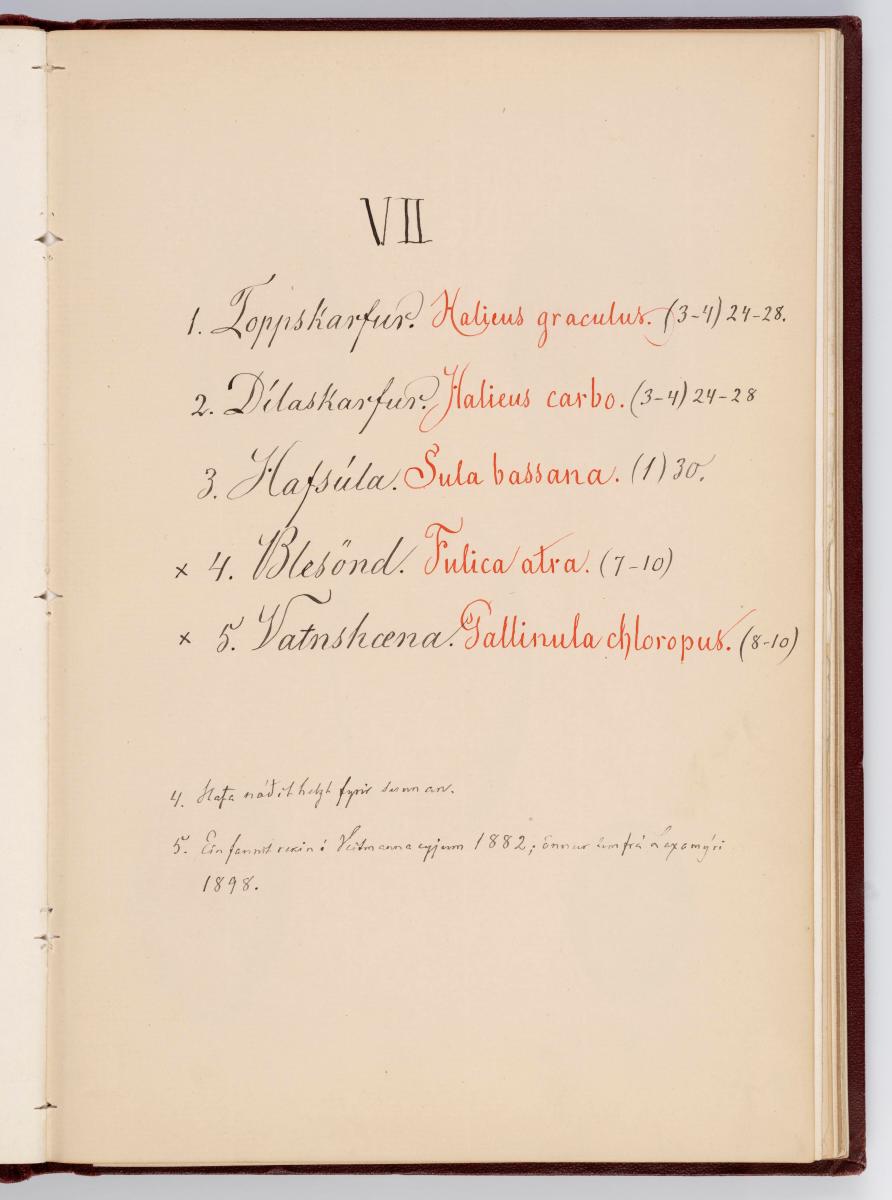 VII
1. Toppskarfur. Halieus graculus. (3-4) 24-28.
2. Dílaskarfur. Halieus carbo. (3-4) 24-28
3. Hafsúla. Sula bassana. (1) 30.
× 4. Blesönd. Fulica atra. (7-10)
× 5. Vatnshæna. Gallinula chloropus. (8-10)
4. Hafa náðst helzt fyrir sunnan.
5. Ein fannst rekin í Vestmannaeyjum 1882; önnur frá Laxamýri
1898.